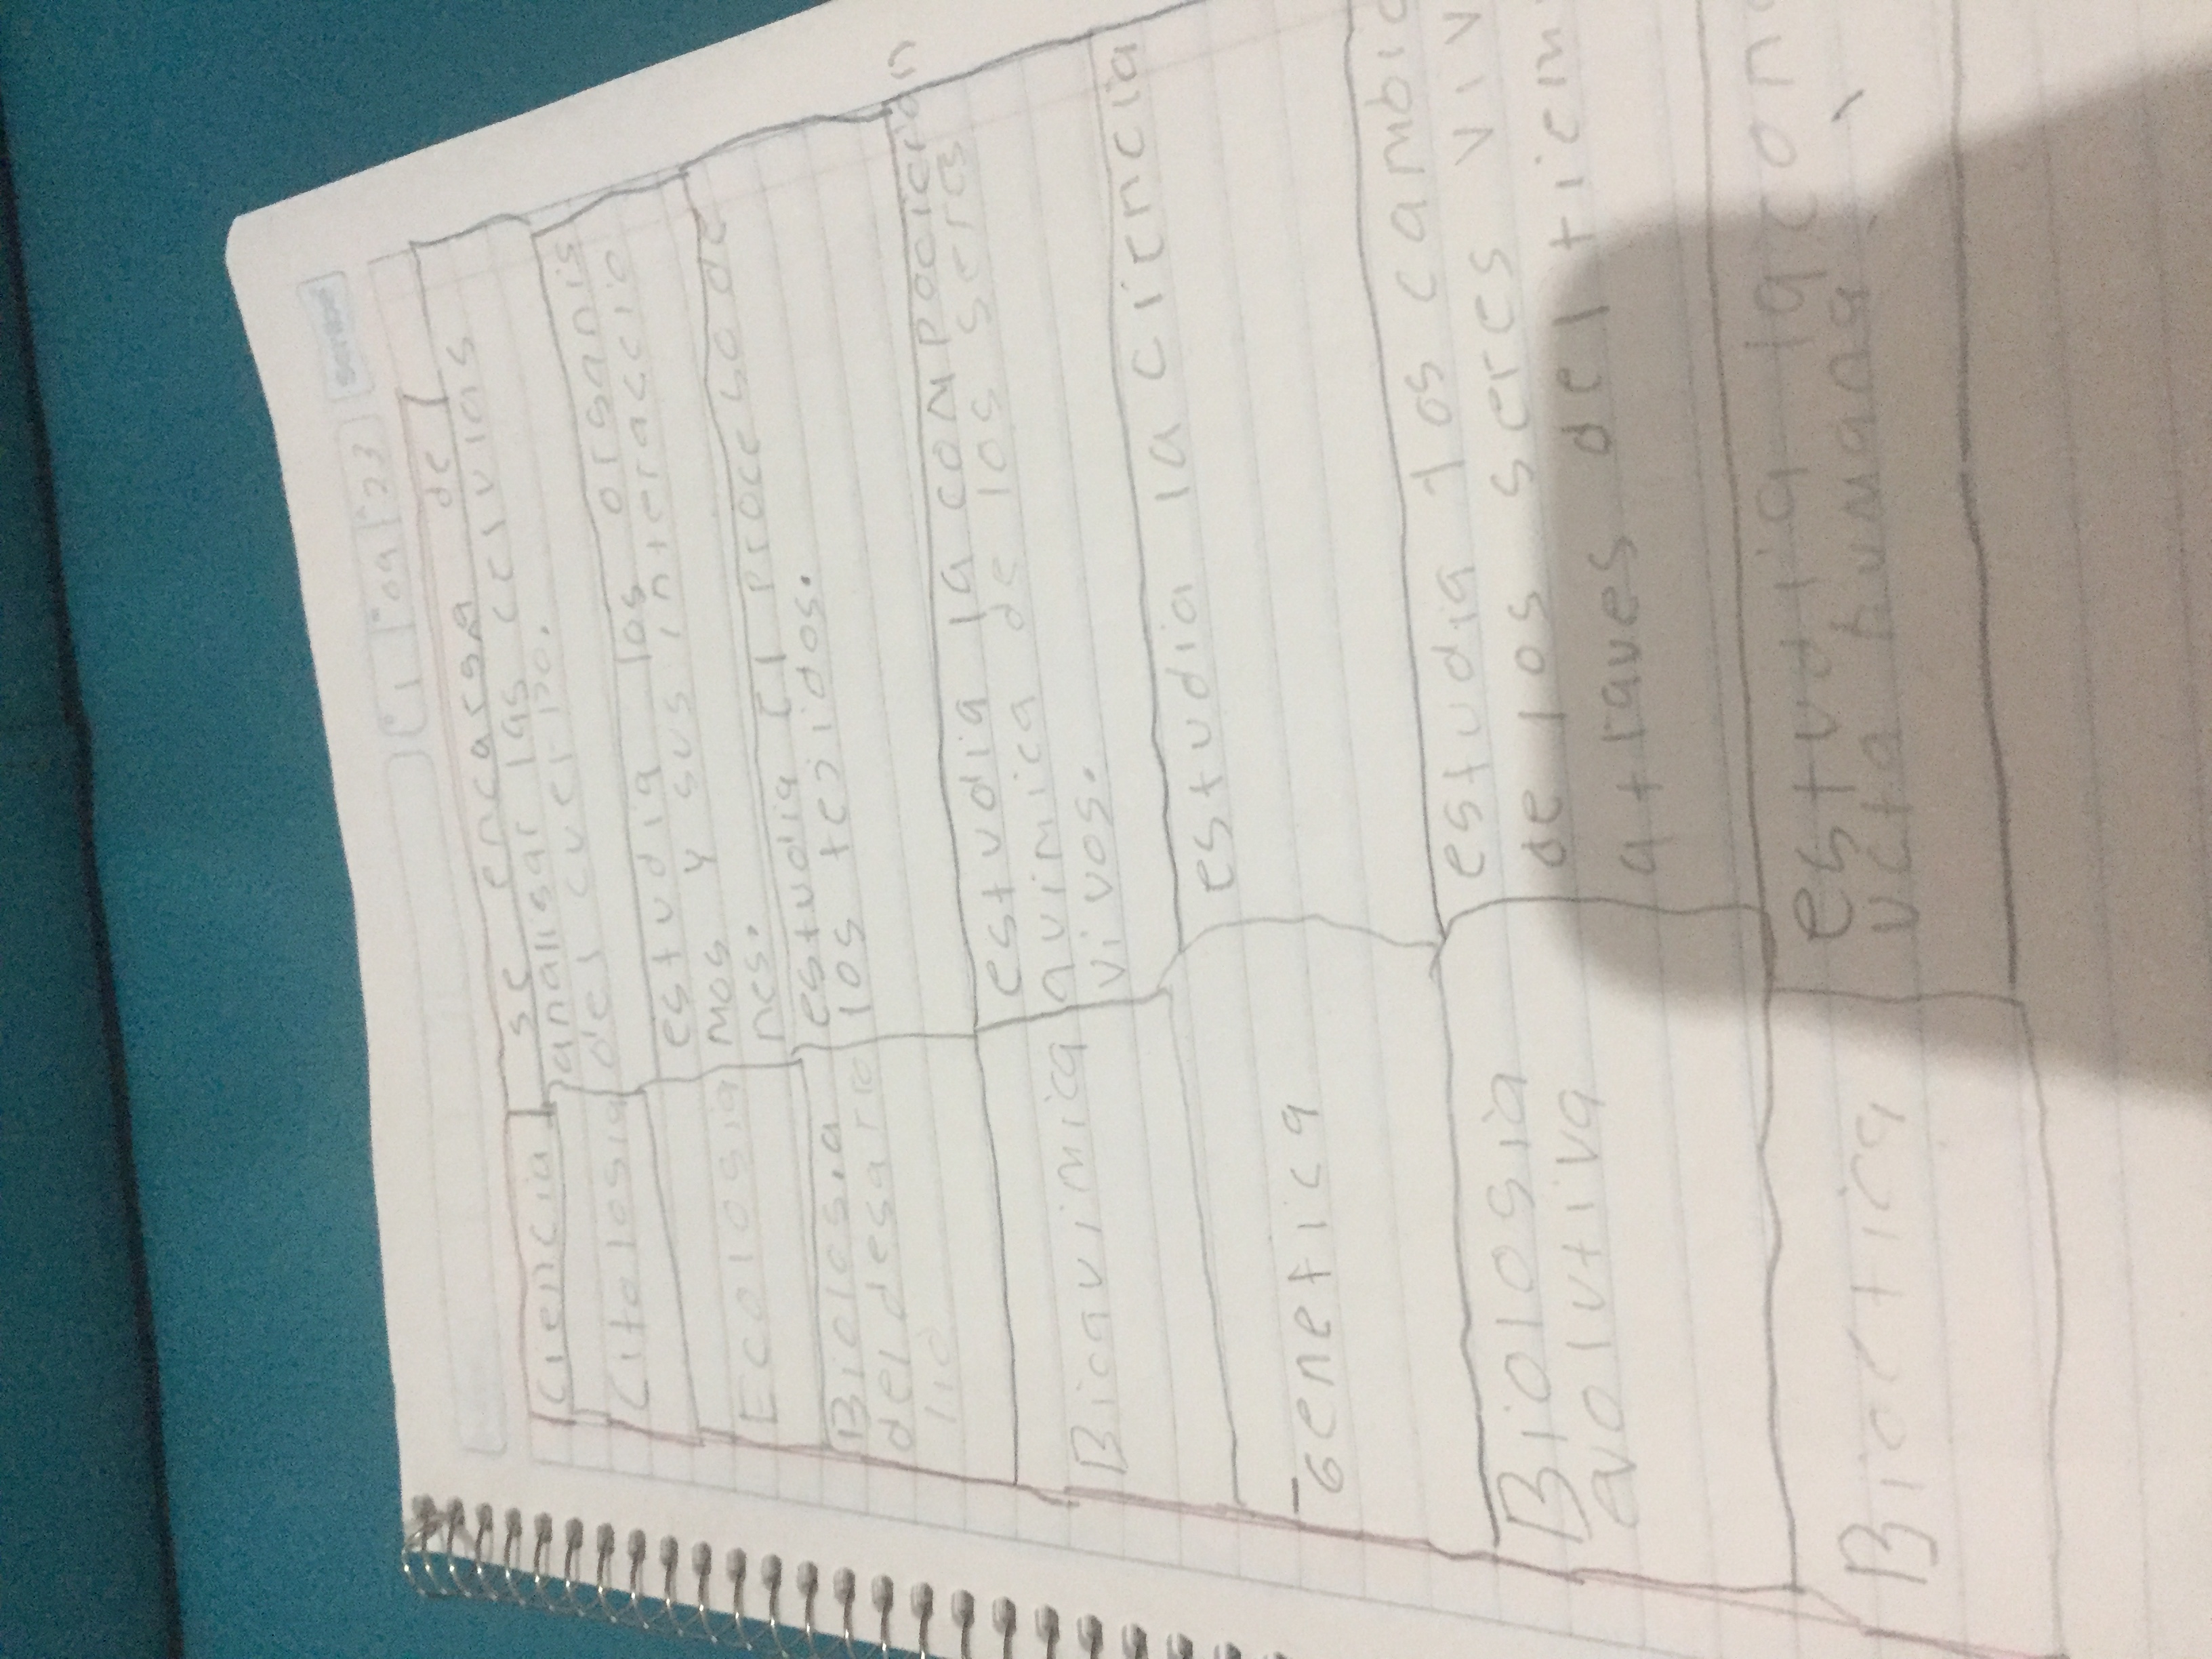 09 23
Scribe
Ciencia se encarga de
analisar las celulas
Citologia del cuerpo.
estudia los organis
mos y sus interaccio
Ecologia nes.
Biologia estudia el proceso de
del desarro los tejidos.
llo
estudia la compocicion
Bioquimica quimica de los seres
vivos.
estudia la ciencia
genetica
estudia los cambio
Biologia de los seres viv
evolutiva atraves del tiem
estudia la con
Bioetica cta humana